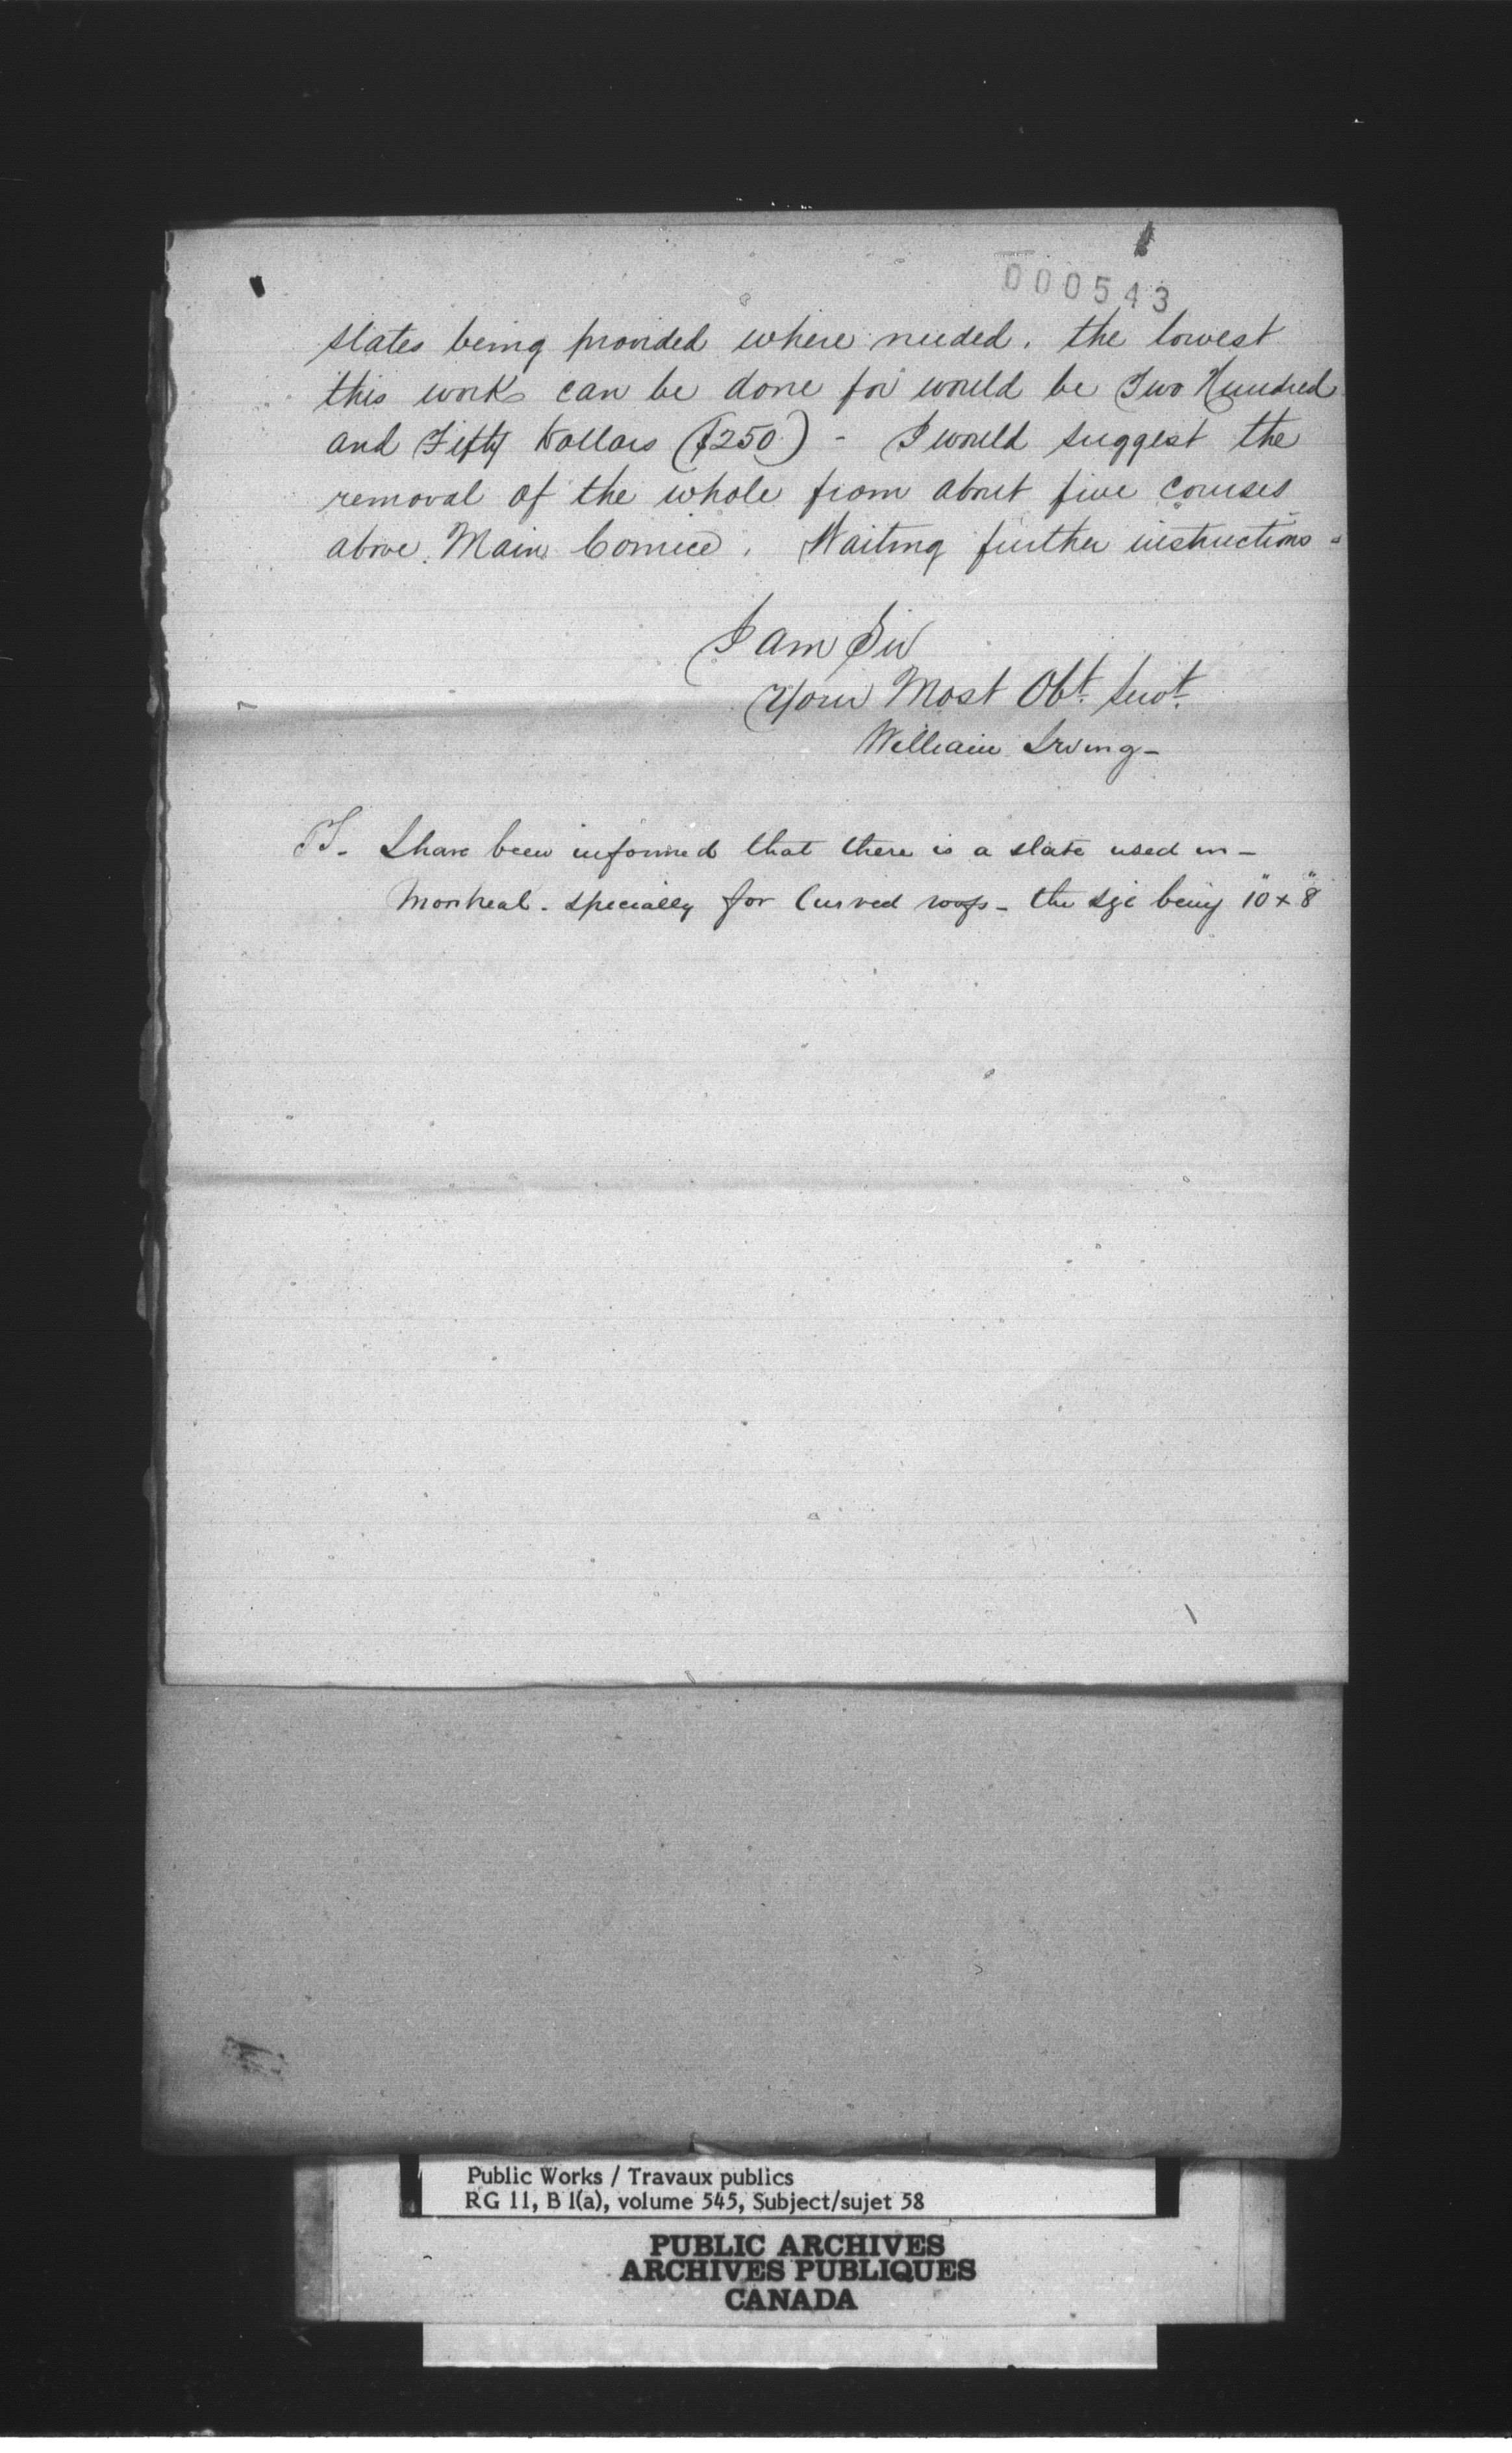 000543
slates being provided where needed. the lowest
this work can be done for would be Two Hundred
and Fifty Dollars ($250) - I would suggest the
removal of the whole from about five courses
above Main Cornice. Waiting further instructions -
I am Sir
Your Most Obt. Servt.
William Irving -
PS - I have been informed that there is a slate used in -
Montreal - specially for Curved roofs - the size being 10" x 8"
Public Works / Travaux publics
RG 11, B 1(a), volume 545, Subject/sujet 58
PUBLIC ARCHIVES
ARCHIVES PUBLIQUES
CANADA